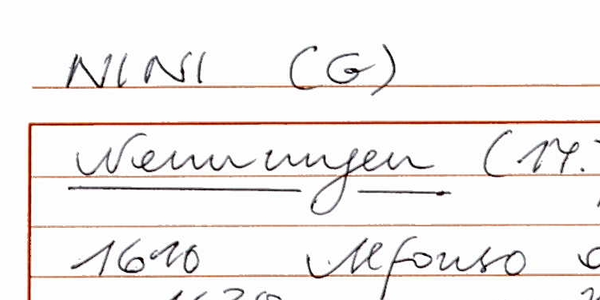 NINI (G)
Nennungen (17.
1610 Alfonso
1630